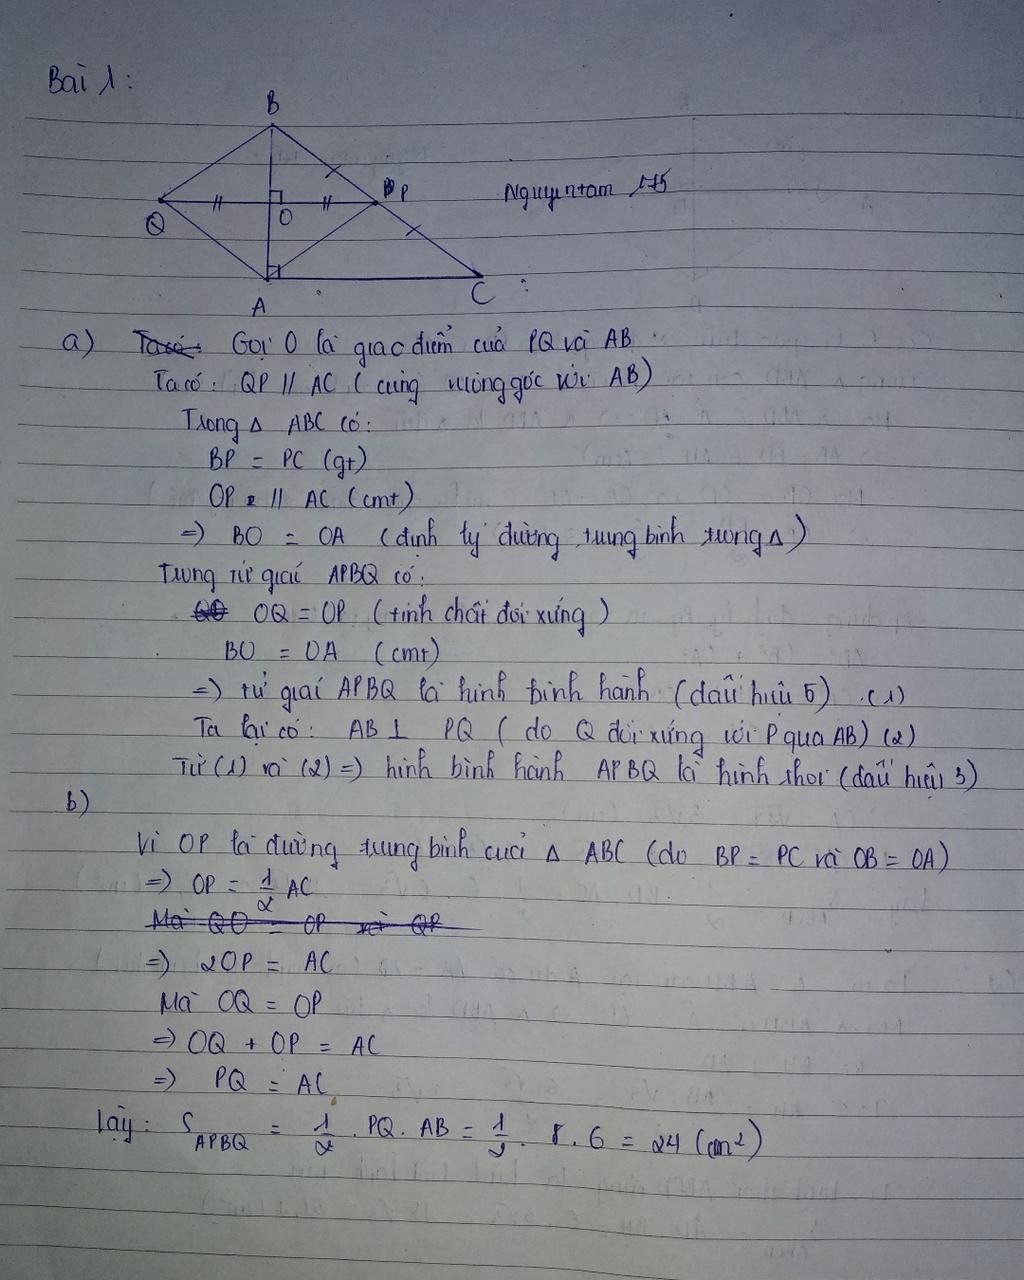 Bài 1:
B
P
Nguyentam 175
Q
O
A
C
a) Gọi O là giao điểm của PQ và AB
Ta có: QP // AC ( cùng vuông góc với AB)
Trong Δ ABC có:
BP = PC (gt)
OP // AC (cmt)
=) BO = OA (định lý đường trung bình trong Δ)
Trong tứ giác APBQ có:
OQ = OP (tính chất đối xứng)
BO = OA (cmt)
=) tứ giác APBQ là hình bình hành (dấu hiệu 5) (1)
Ta lại có: AB ⊥ PQ ( do Q đối xứng với P qua AB) (2)
Từ (1) và (2) =) hình bình hành APBQ là hình thoi (dấu hiệu 3)
b)
Vì OP là đường trung bình của Δ ABC (do BP = PC và OB = OA)
=) OP = 1/2 AC
=) 2OP = AC
Mà OQ = OP
=) OQ + OP = AC
=) PQ = AC
Vậy: S APBQ = 1/2 . PQ . AB = 1/2 . 8 . 6 = 24 (cm²)